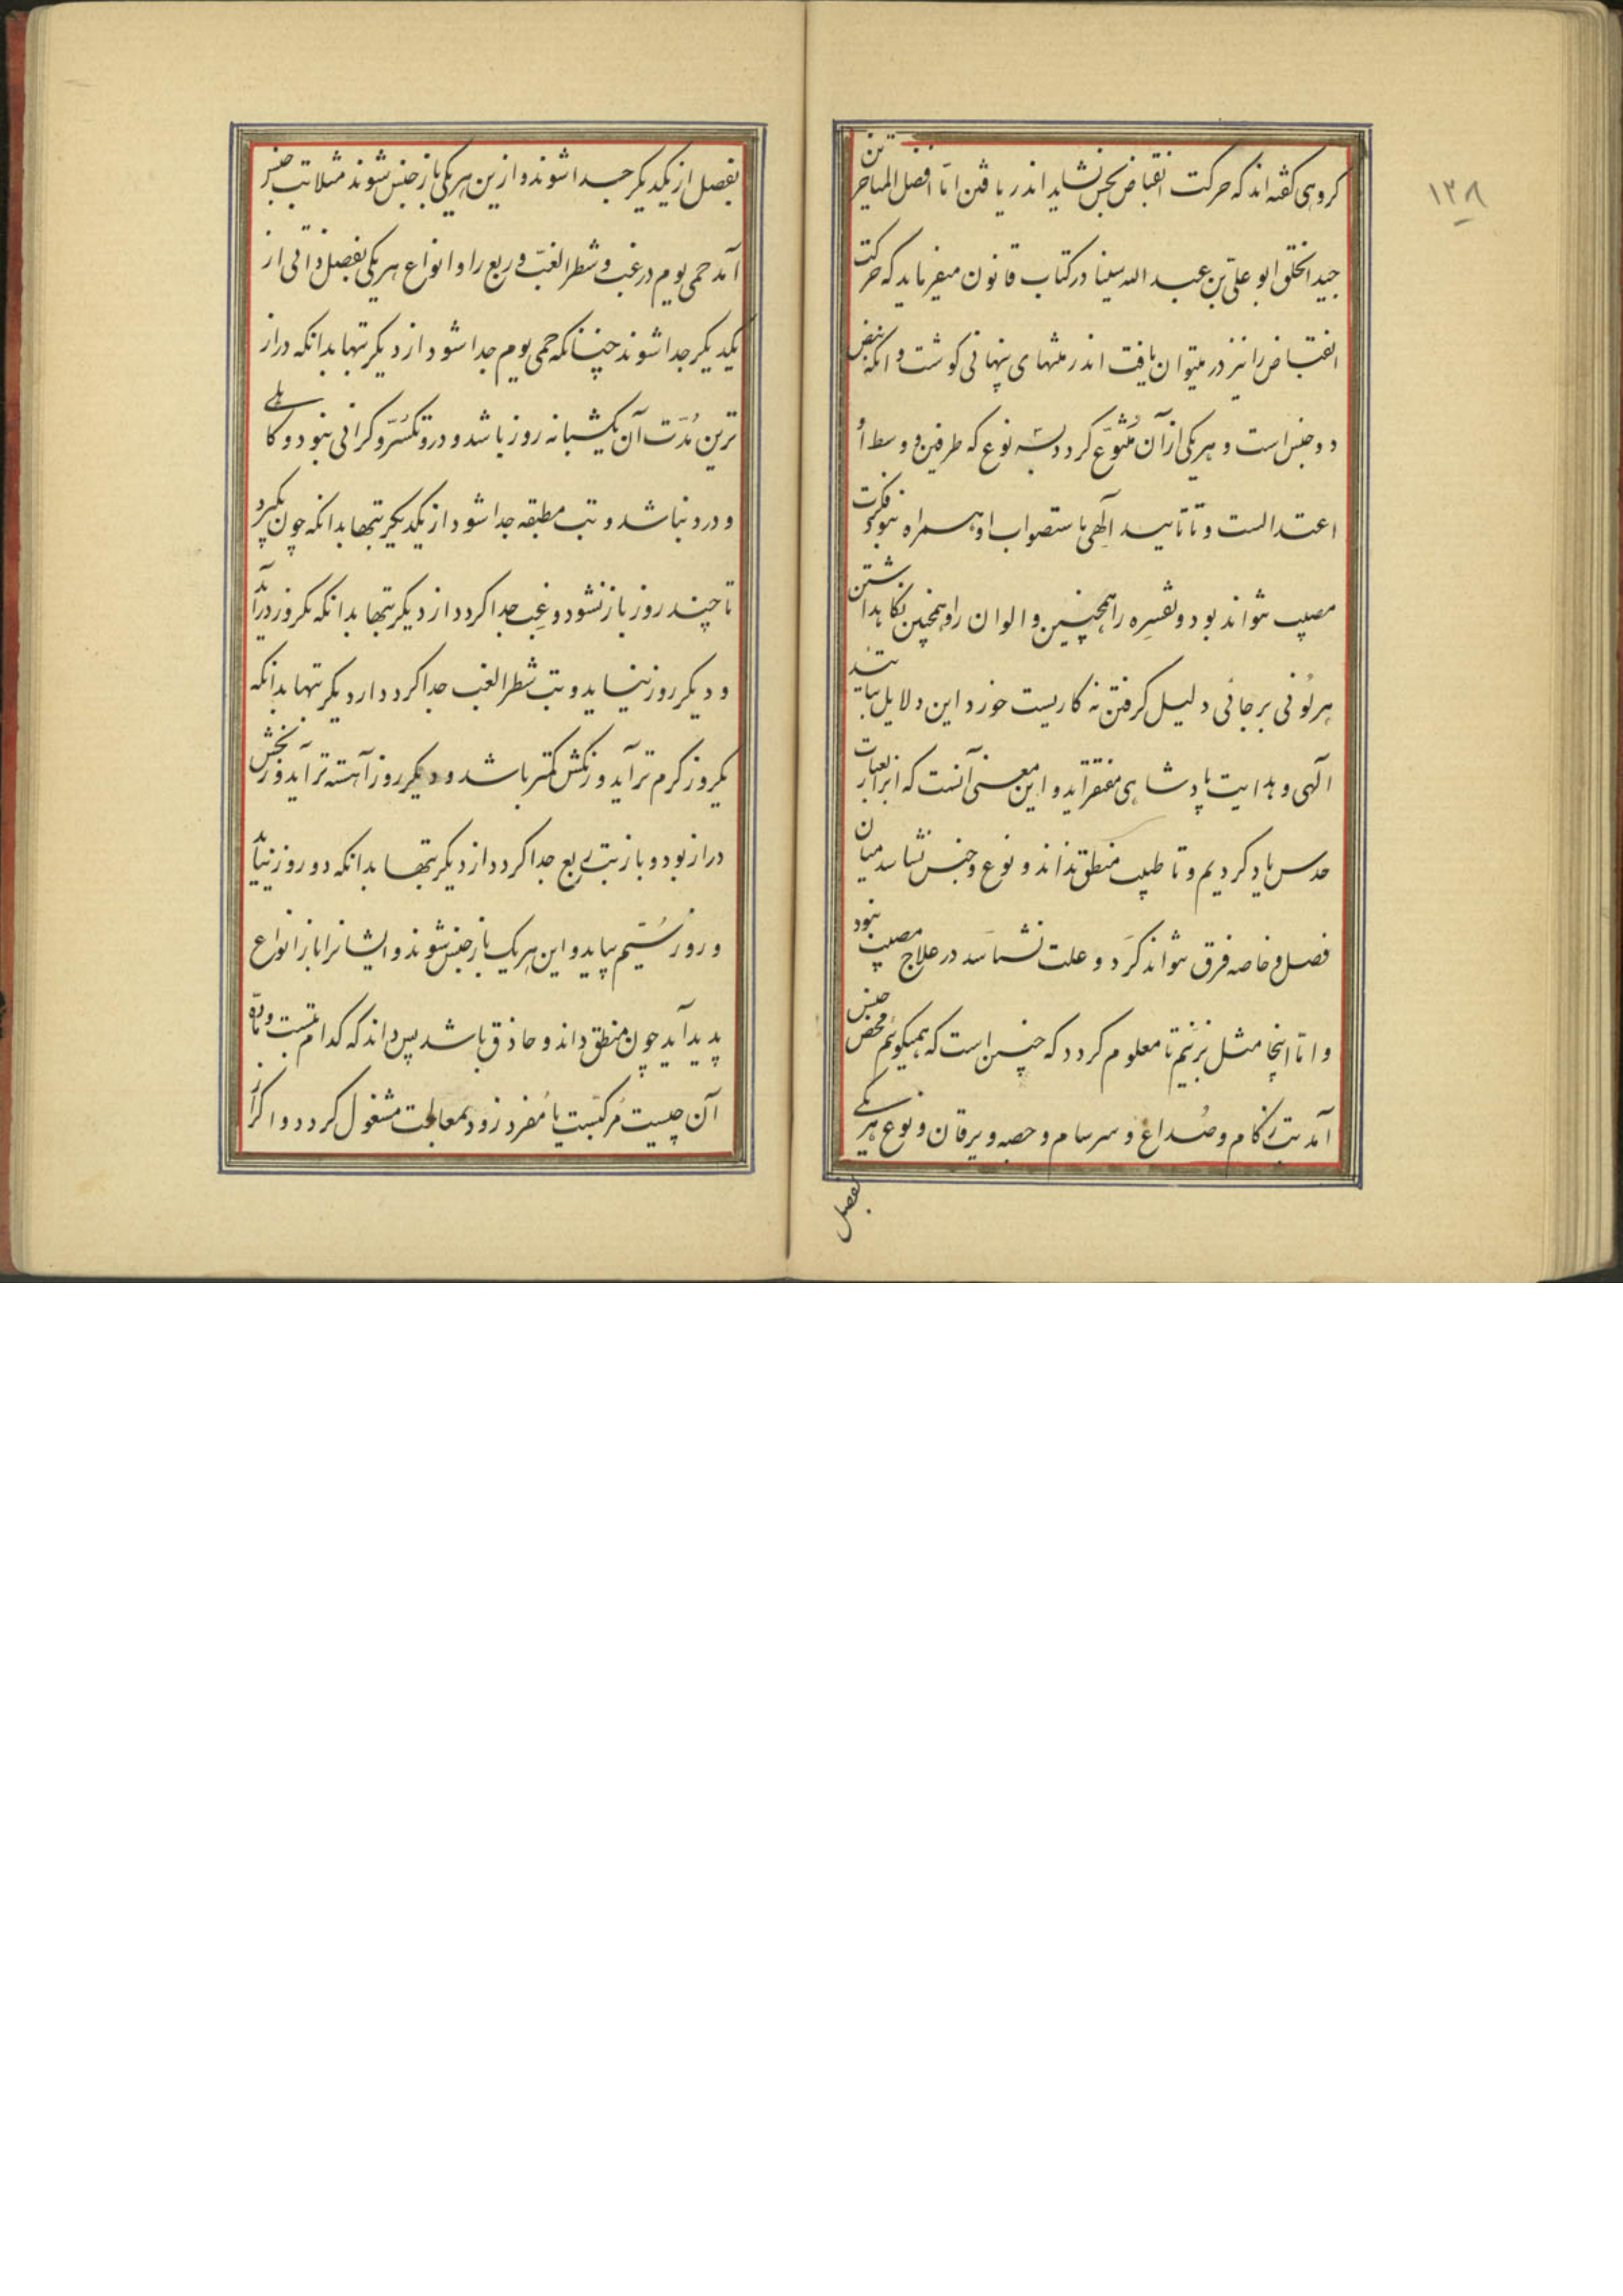 ۱۳۸
کروهی کفته اند که حرکت انقباض بحس نشاید اندر یافتن اما افضل المتاخرین
جید الخلق ابو علی بن عبد الله سینا در کتاب قانون میفرماید که حرکت
انقباض را نیز در میتوان یافت اندر پنهانی کوشت و انکه نبض
دو جنس است و هر یکی از آن متنوع کردد بسه نوع که طرفین و وسط او
اعتدالست و تا تایید الهی باستصواب او همراه نبود فکرت
مصیب نتواند بود و تفسره را همچنین و الوان را و همچنین نکاهداشتن
هر لونی بر جائی دلیل کرفتن نه کاریست خورد این دلایل بتایید
الهی و هدایت پادشاهی مفتقرآید و این معنی آنست که ابرا بعبارت
حدس یاد کردیم و تا طبیب منطق نداند و نوع و جنس نشناسد میان
فصل و خاصه فرق نتواند کرد و علت نشناسد در علاج مصیب نبود
و اما اینجا مثل بزنیم تا معلوم کردد که چنین است که همیکوئیم مرض جنس
آمد تب زکام و صداع و سرسام و حصبه و یرقان و نوع هر یکی
بفصل
بفصل از یکدیکر جدا شوند و ازین هر یکی باز جنس شوند مثلا تب جنس
آمد حمی یوم در غب و شطر الغب و ربع را و انواع هر یکی بفصل ذاتی از
یکدیکر جدا شوند چنانکه حمی یوم جدا شود از دیکر تبها بدانکه دراز
ترین مدت آن یکشبانه روز باشد و درو تکسر و کرانی نبود و کاهلی
و درد نباشد و تب مطبقه جدا شود از یکدیکر تبها بدانکه چون بکیرد
تا چند روز باز نشود و غب جدا کردد از دیکر تبها بدانکه یکروز درآید
و دیکر روز نیاید و تب شطر الغب جدا کردد از دیکر تبها بدانکه
یکروز کرم تر آید و زنکش کمتر باشد و دیکر روز آهسته تر آید و زنکش
دراز بود و باز تب ربع جدا کردد از دیکر تبها بدانکه دو روز نیاید
و روز سیم بیاید و این هر یک باز جنس شوند و ایشانرا باز انواع
پدید آید چون منطق داند و حاذق باشد پس داند که کدام تبست و ماده
آن چیست مرکبست یا مفرد زود بمعالجت مشغول کردد و اکر از